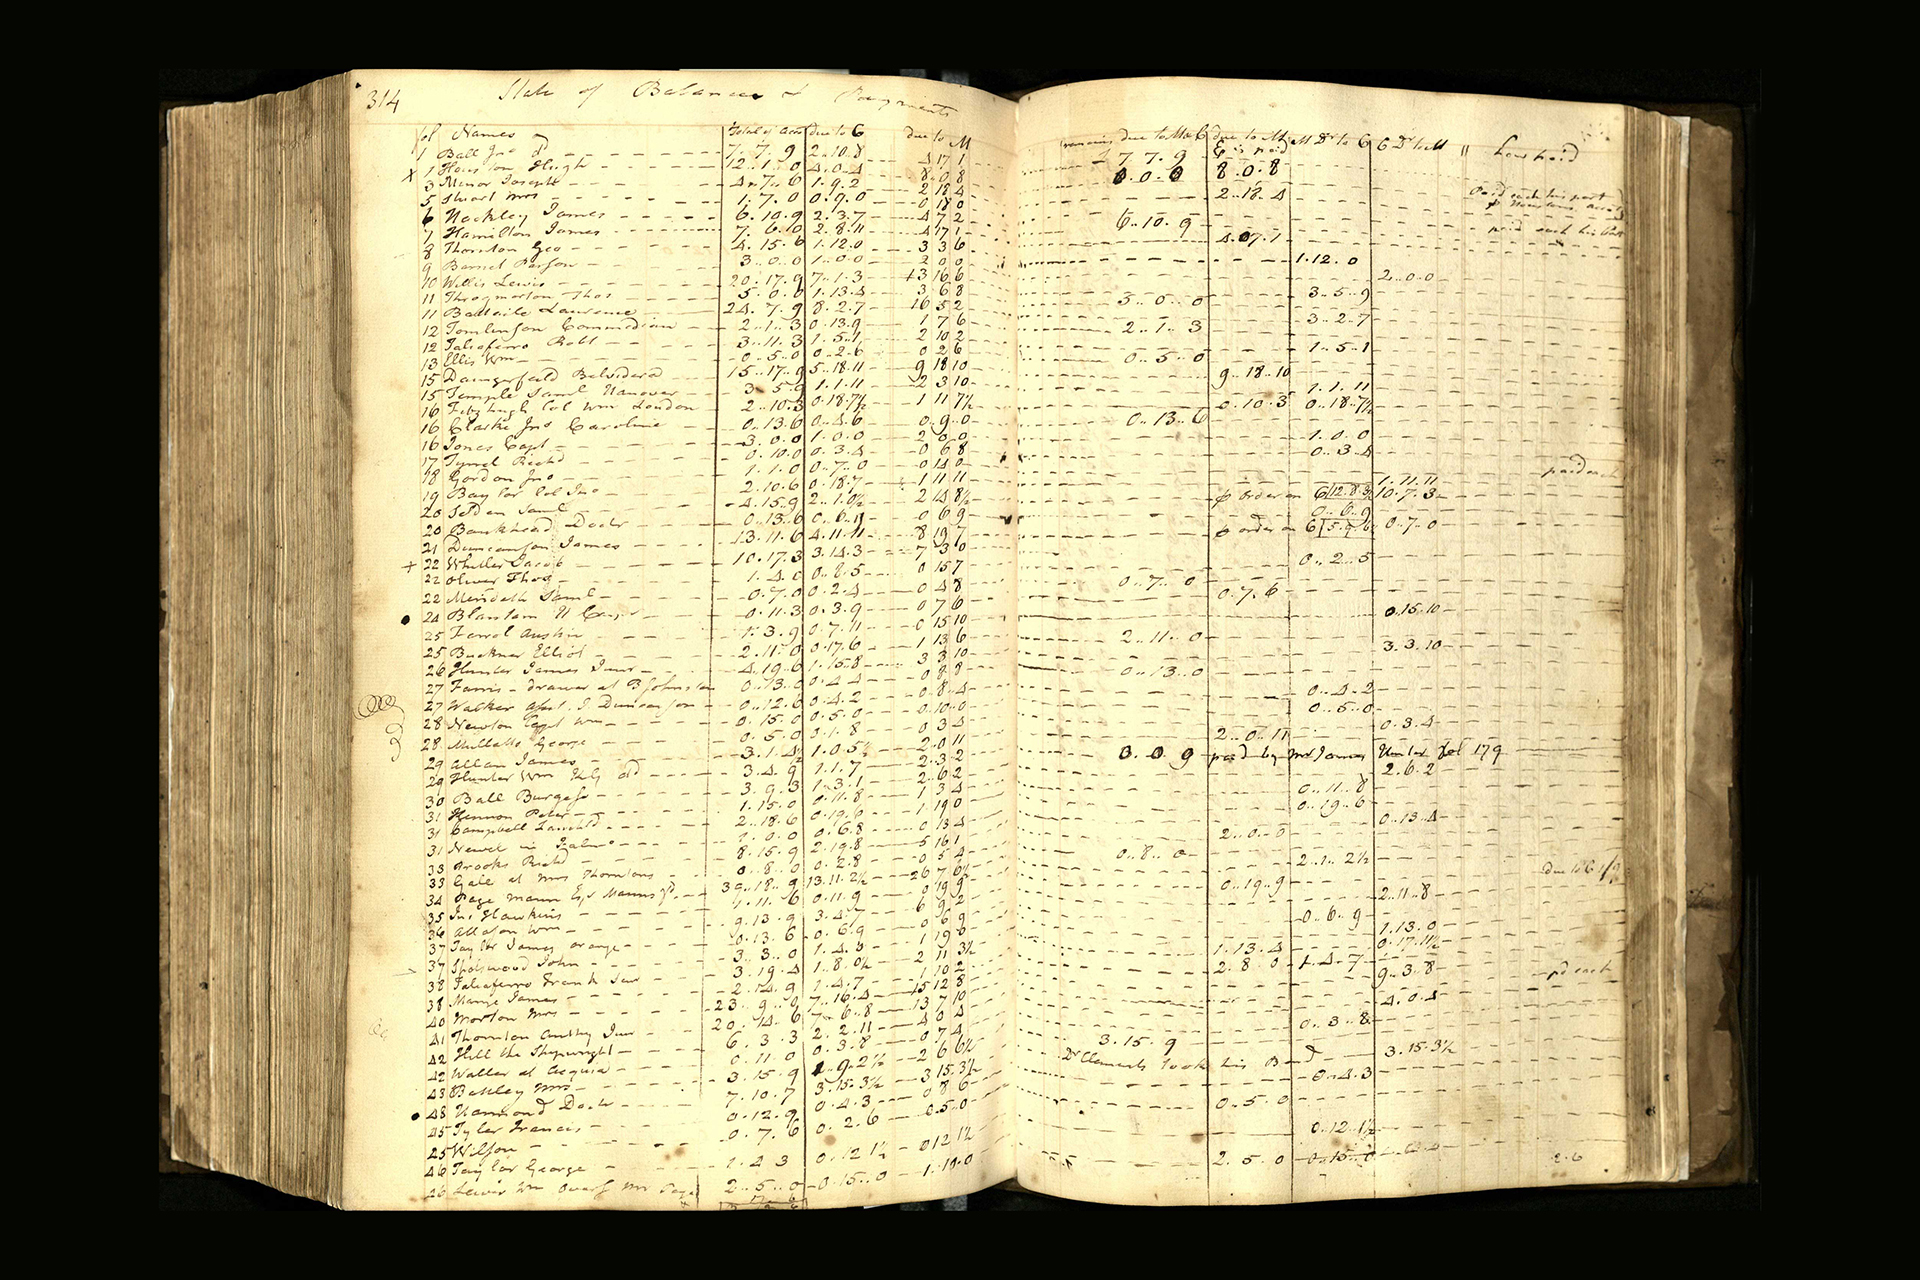 314 State of Balances & Payments
fol Names Total of Accts due to C due to M
1 Ball Jno 7.7.9 2.10.8 4 17 1
x 1 Houston Hugh 12.1.0 4.0.4 8.0 8
3 Minor Joseph 4.7.6 1.9.2 2 18 4
5 Stuart Mrs 1.7.0 0.9.0 0 18 0
6 Hackley James 6.10.9 2.3.7 4 7 2
7 Hamilton James 7.6.10 2.8.11 4 17 1
8 Thornton Geo 4.15.6 1.12.0 3 3 6
9 Barnet Parson 3.0.0 1.0.0 2 0 0
10 Willis Lewis 20.17.9 7.1.3 13 16 6
11 Throgmorton Thos 5.0.0 1.13.4 3 6 8
11 Battaile Lawrence 24.7.9 8.2.7 16 5 2
12 Tomlinson Commodian 2.1.3 0.13.9 1 7 6
12 Taliaferro Robt 3.11.3 1.5.1 2 10 2
13 Ellis Wm 0.5.0 0.2.6 0 2 6
15 Daingerfield Belvidera 15.17.9 5.18.11 9 18 10
15 Temple Saml Hanover 3.5.9 1.1.11 2 3 10
16 Fitzhugh Col Wm London 2.10.3 0.18.7½ 1 11 7½
16 Clarke Jno Caroline 0.13.6 0.4.6 0.9.0
16 Jones Capt 3.0.0 1.0.0 2 0 0
17 Tyrrel Richd 0.10.0 0.3.4 0 6 8
18 Gordon Jno 1.1.0 0.7.0 0 14 0
19 Baylor Col Jno 2.10.6 0.18.7 1 11 11
20 Selden Saml 4.15.9 2.1.0½ 2 14 8½
20 Bankhead Doctr 0.13.6 0.6.9 0 6 9
21 Duncanson James 13.11.6 4.11.11 8 19 7
+ 22 Whitler Jacob 10.17.3 3.14.3 7 3 0
22 Oliver Thos 1.4.0 0.8.5 0 15 7
22 Merideth Saml 0.7.0 0.2.4 0 4 8
24 0.11.3 0.3.9 0 7 6
25 Ferrel Austin 1.3.9 0.7.11 0 15 10
25 Buckner Elliot 2.11.0 0.17.6 1 13 6
26 Hunter James Junr 4.19.6 1.15.8 3 3 10
27 Farris - drawer at B Johnston 0.13.0 0.4.4 0 8 8
27 Walker J Duncanson 0.12.6 0.4.2 0.8.4
28 Newton Capt Wm 0.15.0 0.5.0 0.10.0
28 Mullatto George 0.5.0 0 3 4
29 Allan James 3.1.4½ 1.0.5½ 2.0 11
29 Hunter Wm 3.4.9 1.1.7 2.3.2
30 Ball Burgess 3.9.3 1.3.1 2.6 2
31 Hennon Peter 1.15.0 0.11.8 1 3 4
31 Campbell 2.18.6 0.19.6 1.19 0
31 Newel in 1.0.0 0.6.8 0 13 4
33 Brooks Richd 8.15.9 2.19.8 5 16 1
33 Gale at Mrs Thorntons 0.8.0 0.2.8 0 5 4
34 Page Mann Esq 39.18.9 13.11.2½ 26 7 6½
35 Jno Hawkins 1.11.6 0.11.9 0 19 9
36 Allason Wm 9.13.9 3.4.7 6 9 2
37 Taylor James Orange 0.13.6 0.6.9 0 6 9
37 Spotswood John 3.3.0 1.4.0 1 19 0
38 Taliaferro Frank Senr 3.19.4 1.8.0½ 2 11 3½
38 Marye James 2.14.9 1.4.7 1 10 2
40 Morton Mrs 23.9.0 7.16.4 15 12 8
41 Thornton Anthy Junr 20.14.6 7.6.8 13 7 10
42 Hill the Shipwright 6.3.3 2.2.11 4 0 4
42 Waller at Acquia 0.11.0 0.3.8 0 7 4
43 Berkley Mrs 3.15.9 1.9.2½ 2 6 6½
43 Hammond Doctr 7.10.7 3.15.3½ 3 15.3½
45 Tyler Francis 0.12.9 0.4.3 0 8 6
45 Wilson 0.7.6 0.2.6 0.5.0
46 Taylor George 1.4 3 0.12 1½ 0 12 1½
46 Lewis Wm Overs Mr Page 2.5.0 0.15.0 1.10.0
remains due to M & C due to M C is paid M Dr to C C Dr to M " how paid
7.7.9
0.0.0 8.0.8
2.18.4 Paid each his part
6.10.9 paid each his part
4.17.1
1.12.0
2.0.0
3.5.9
5.0.0
3.2.7
2.1.3
1.5.1
0.5.0
9.18.10
1.1.11
0.10.3 0.18.7½
0.13.6
1.0.0
0.3.4
paid each
1.11.11
p order on C 12.8.3½ 10.7.3
0.6.9
p order on C 5.9.6 0.7.0
0.2.5
0.7.0
0.7.6
0.15.10
2.11.0
3.3.10
0.13.0
0.4.2
0.5.0
0.3.4
2.0.11
3.0.9 paid by Mr James Hunter fol 179
2.6.2
0.11.8
0.19.6
0.13.4
2.0.0
0.8.0
2.1.2½
due to C
0.19.9
2.11.8
0.6.9
1.13.0
1.13.4 0.17.11½
2.8.0 1.4.7
9.3.8 pd each
4.0.4
0.3.8
3.15.9
Dr Clements took his B 3.15.3½
0.4.3
0.5.0
0.12.1½
2.5.0 0.15.0
2.6